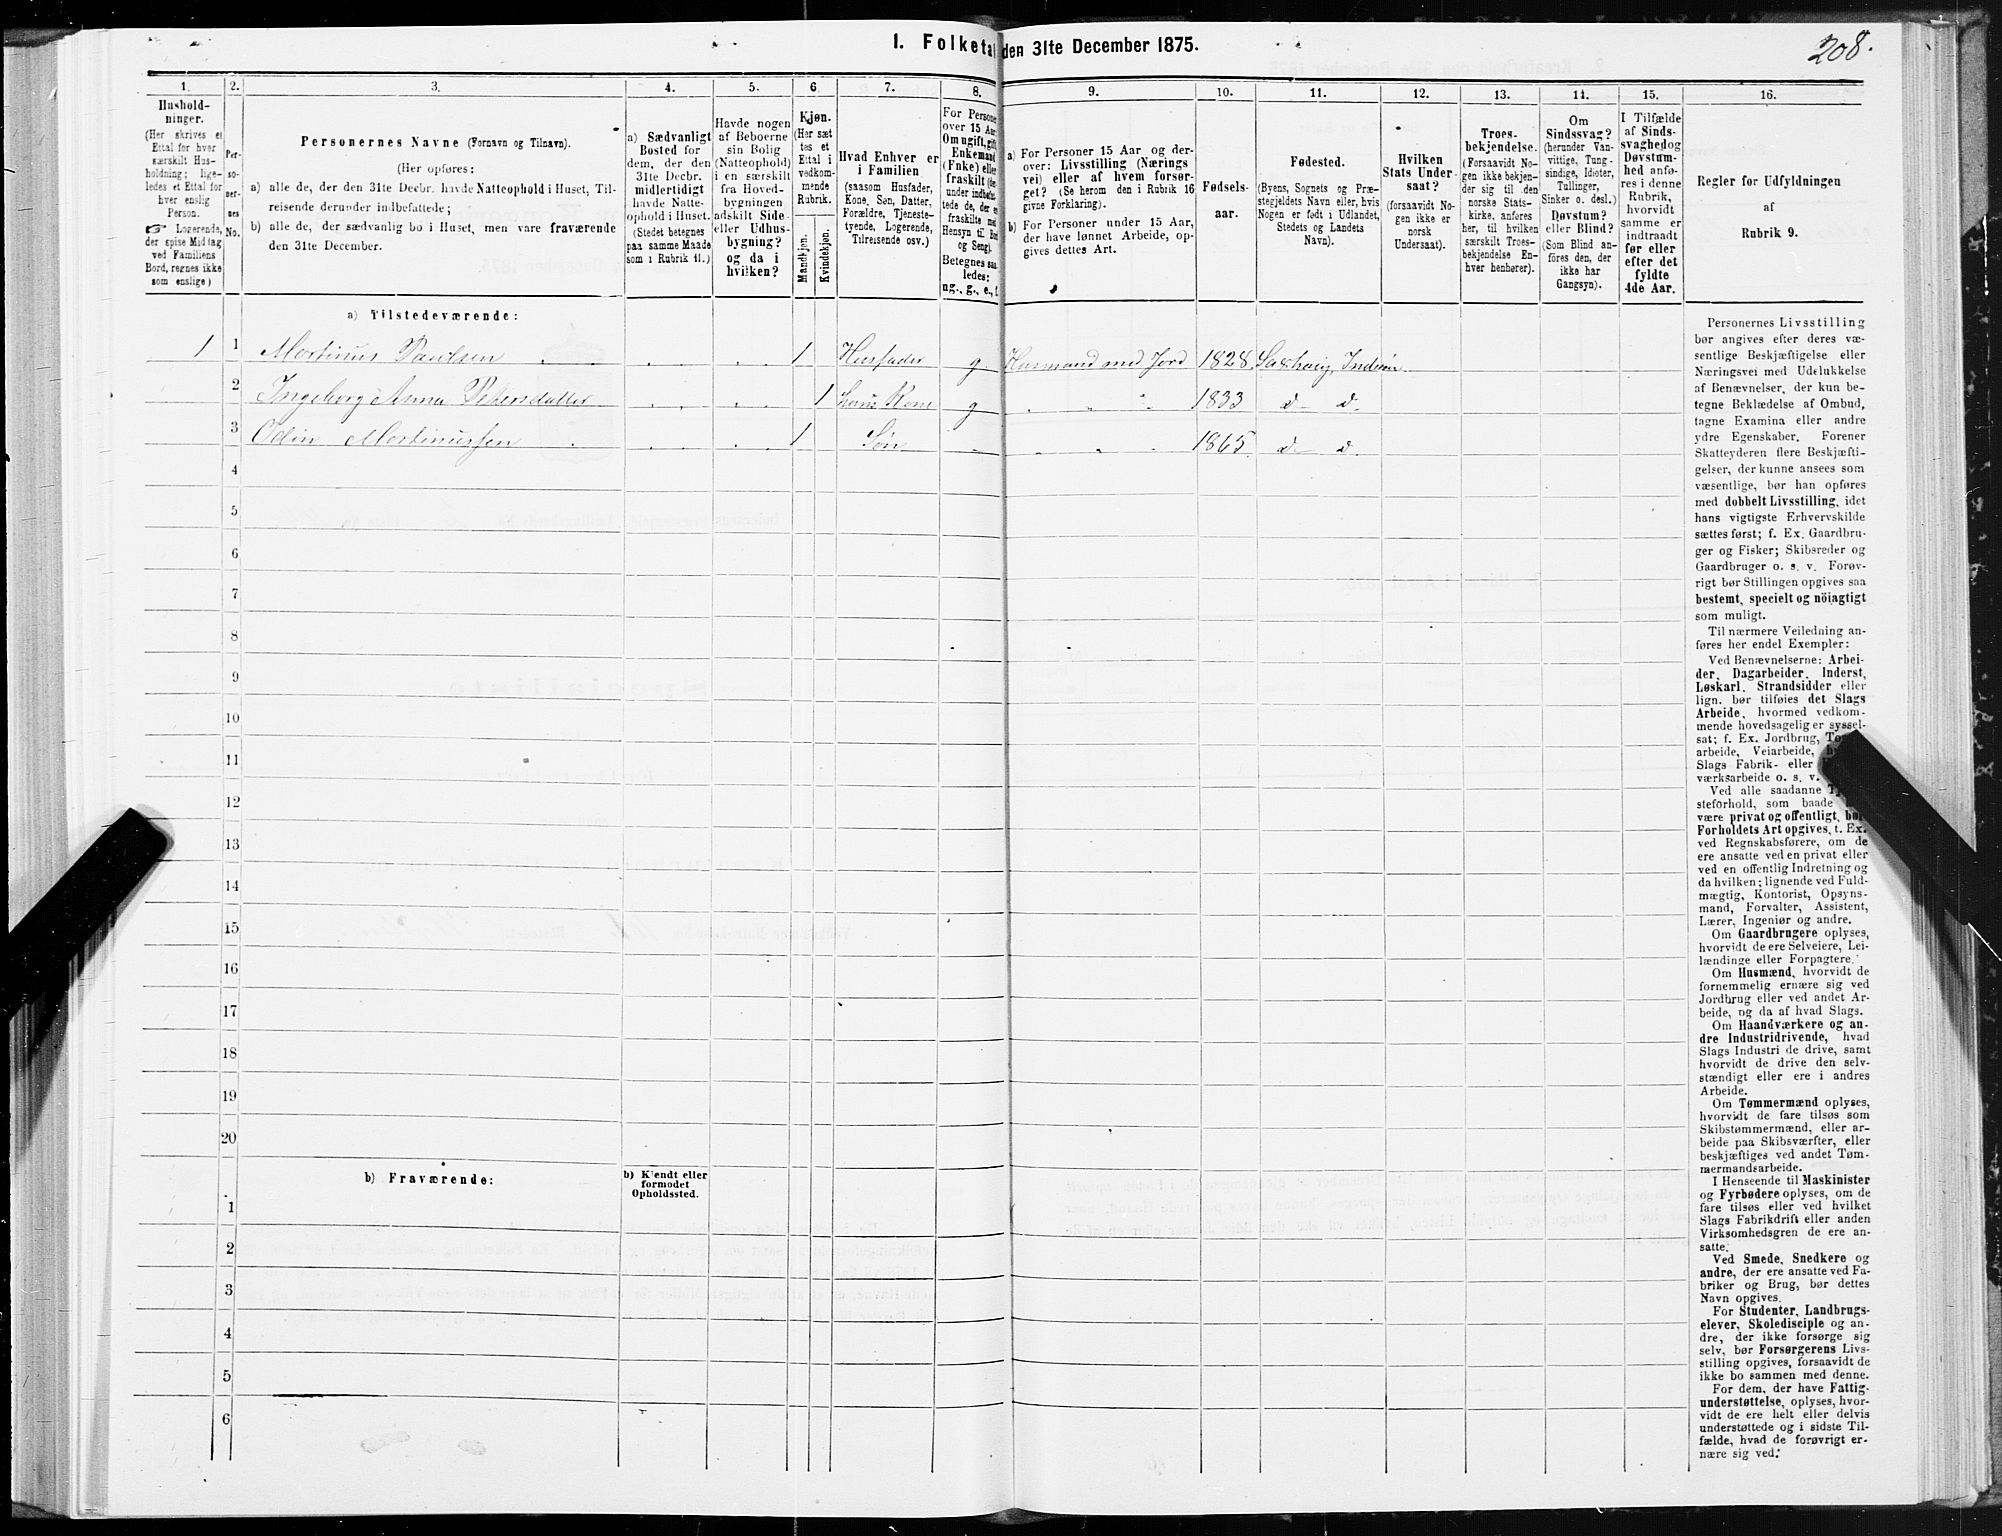 1. Folketal den 31te December 1875.
208.
1.
2.
3.
4.
5.
6.
7.
8.
9.
10.
11.
12.
13.
14.
15.
16.
Hushold-
ninger.
(Her skrives et
Ettal for hver
særskilt Hus-
holdning; lige-
ledes et Ettal for
hver enslig
Person.
☞ Logerende,
der spise Middag
ved Familiens
Bord, regnes ikke
som enslige)
Per-
so-
ner-
nes
No.
Personernes Navne (Fornavn og Tilnavn).
(Her opføres:
a) alle de, der den 31te Decbr. havde Natteophold i Huset, Til-
reisende derunder indbefattede;
b) alle de, der sædvanlig bo i Huset, men vare fraværende
den 31te December.
a) Sædvanligt
Bosted for
dem, der den
31te Decbr.
midlertidigt
havde Natte-
ophold i Huset.
(Stedet betegnes
paa samme Maade
som i Rubrik 11.)
Havde nogen
af Beboerne
sin Bolig
(Natteophold)
i en særskilt
fra Hoved-
bygningen
adskilt Side-
eller Udhus-
bygning?
og da i
hvilken?
Kjøn.
(Her sæt
tes et
Ettal i
vedkom-
mende
Rubrik.
Mandkjøn.
Kvindekjøn.
Hvad Enhver er
i Familien
(saasom Husfader,
Kone, Søn, Datter,
Forældre, Tjeneste-
tyende, Logerende,
Tilreisende osv.)
For Persone
over 15 Aar
Om ugift, gift
Enkemand
(Enke) eller
fraskilt (der
under indbefat
tede de, der er
fraskilte med
Hensyn til Bord
og Seng).
Betegnes saa
ledes:
ug., g., e., f.
a) For Personer 15 Aar og der-
over: Livsstilling (Nærings
vei) eller af hvem forsør-
get? (Se herom den i Rubrik 16
givne Forklaring).
b) For Personer under 15 Aar,
der have lønnet Arbeide, op-
gives dettes Art.
Fødsels-
aar.
Fødested.
(Byens, Sognets og Præ-
stegjeldets Navn eller, hvis
Nogen er født i Udlandet,
Stedets og Landets
Navn).
Hvilken
Stats Under-
saat?
(forsaavidt No-
gen ikke er
norsk
Undersaat).
Troes-
bekjendelse.
(Forsaavidt No-
gen ikke bekjen-
der sig til den
norske Stats-
kirke, anføres
her, til hvilken
særskilt Troes-
bekjendelse En-
hver henhører).
Om
Sindssvag?
(herunder Van-
vittige, Tung-
sindige, Idioter,
Tullinger,
Sinker o. desl.)
Døvstum?
eller Blind?
(Som Blind an-
føres den, der
ikke har
Gangsyn).
I Tilfælde
af Sinds-
svaghed og
Døvstum-
hed anfø-
res i denne
Rubrik,
hvorvidt
samme er
indtraadt
før eller
efter det
fyldte
4de Aar.
Regler for Udfyldningen
af
Rubrik 9.
a) Tilstedeværende:
1 1 Mortinus Paulsen 1 Husfader g. Husmand med Jord 1828. Saxhaug, Inderøen
2 Ingeborg Anna Petersdatter 1 hans Kone g 1833 d d.
3 Odin Mortinussen 1 Søn 1865. d d.
4
5
6
7
8
9
10
11
12
13
14
15
16
17
18
19
20
b) Fraværende:
b) Kjendt eller
formodet
Opholdssted.
1
2
3
4
5
6
Personernes Livsstilling
bør angives efter deres væ-
sentlige Beskjæftigelse eller
Næringsvei med Udelukkelse
af Benævnelser, der kun be-
tegne Beklædelse af Ombud,
tagne Examina eller andre
ydre Egenskaber. Forener
Skatteyderen flere Beskjæfti-
gelser, der kunne ansees som
væsentlige, bør han opføres
med dobbelt Livsstilling, idet
hans vigtigste Erhvervskilde
sættes først; f. Ex. Gaardbru-
ger og Fisker; Skibsreder og
Gaardbruger o. s. v. Forøv-
rigt bør Stillingen opgives saa
bestemt, specielt og nöiagtigt
som muligt.
Til nærmere Veiledning an-
føres her endel Exempler:
Ved Benævnelserne: Arbei-
der, Dagarbeider, Inderst,
Løskarl, Strandsidder eller
lign. bør tilføies det Slags
Arbeide, hvormed vedkom-
mende hovedsagelig er syssel-
sat; f. Ex. Jordbrug,
arbeide, Veiarbeide,
Slags Fabrik- eller
værksarbeide o. s. v.
Ved alle saadanne
steforhold, som baade
være privat og offentligt, bør
Forholdets Art opgives, t. Ex.
ved Regnskabsførere, om de
ere ansatte ved en privat eller
ved en offentlig Indretning og
da hvilken; lignende ved Fuld-
mægtig, Kontorist, Opsyns-
mand, Forvalter, Assistent,
Lærer, Ingeniør og andre.
Om Gaardbrugere oplyses,
hvorvidt de ere Selveiere, Lei-
lændinge eller Forpagtere.
Om Husmænd, hvorvidt de
fornemmelig ernære sig ved
Jordbrug eller ved andet Ar-
beide, og da af hvad Slags.
Om Haandværkere og an-
dre Industridrivende, hvad
Slags Industri de drive, samt
hvorvidt de drive den selv-
stændigt eller ere i andres
Arbeide.
Om Tømmermænd oplyses,
hvorvidt de fare tilsøs som
Skibstømmermænd, eller ar-
beide paa Skibsværfter, eller
beskjæftiges ved andet Tøm-
mermandsarbeide.
I Henseende til Maskinister
og Fyrbødere oplyses, om de
fare tilsøs eller ved hvilket
Slags Fabrikdrift eller anden
Virksomhedsgren de ere an-
satte.
Ved Smede, Snedkere og
andre, der ere ansatte ved Fa-
briker og Brug, bør dettes
Navn opgives.
For Studenter, Landbrugs-
elever, Skoledisciple og an-
dre, der ikke forsørge sig
selv, bør Forsørgerens Livs-
stilling opgives, forsaavidt de
ikke bo sammen med denne.
For dem, der have Fattig-
understøttelse, oplyses, hvor-
vidt de ere helt eller delvis
understøttede og i sidste Til-
fælde, hvad de forøvrigt er-
nære sig ved.